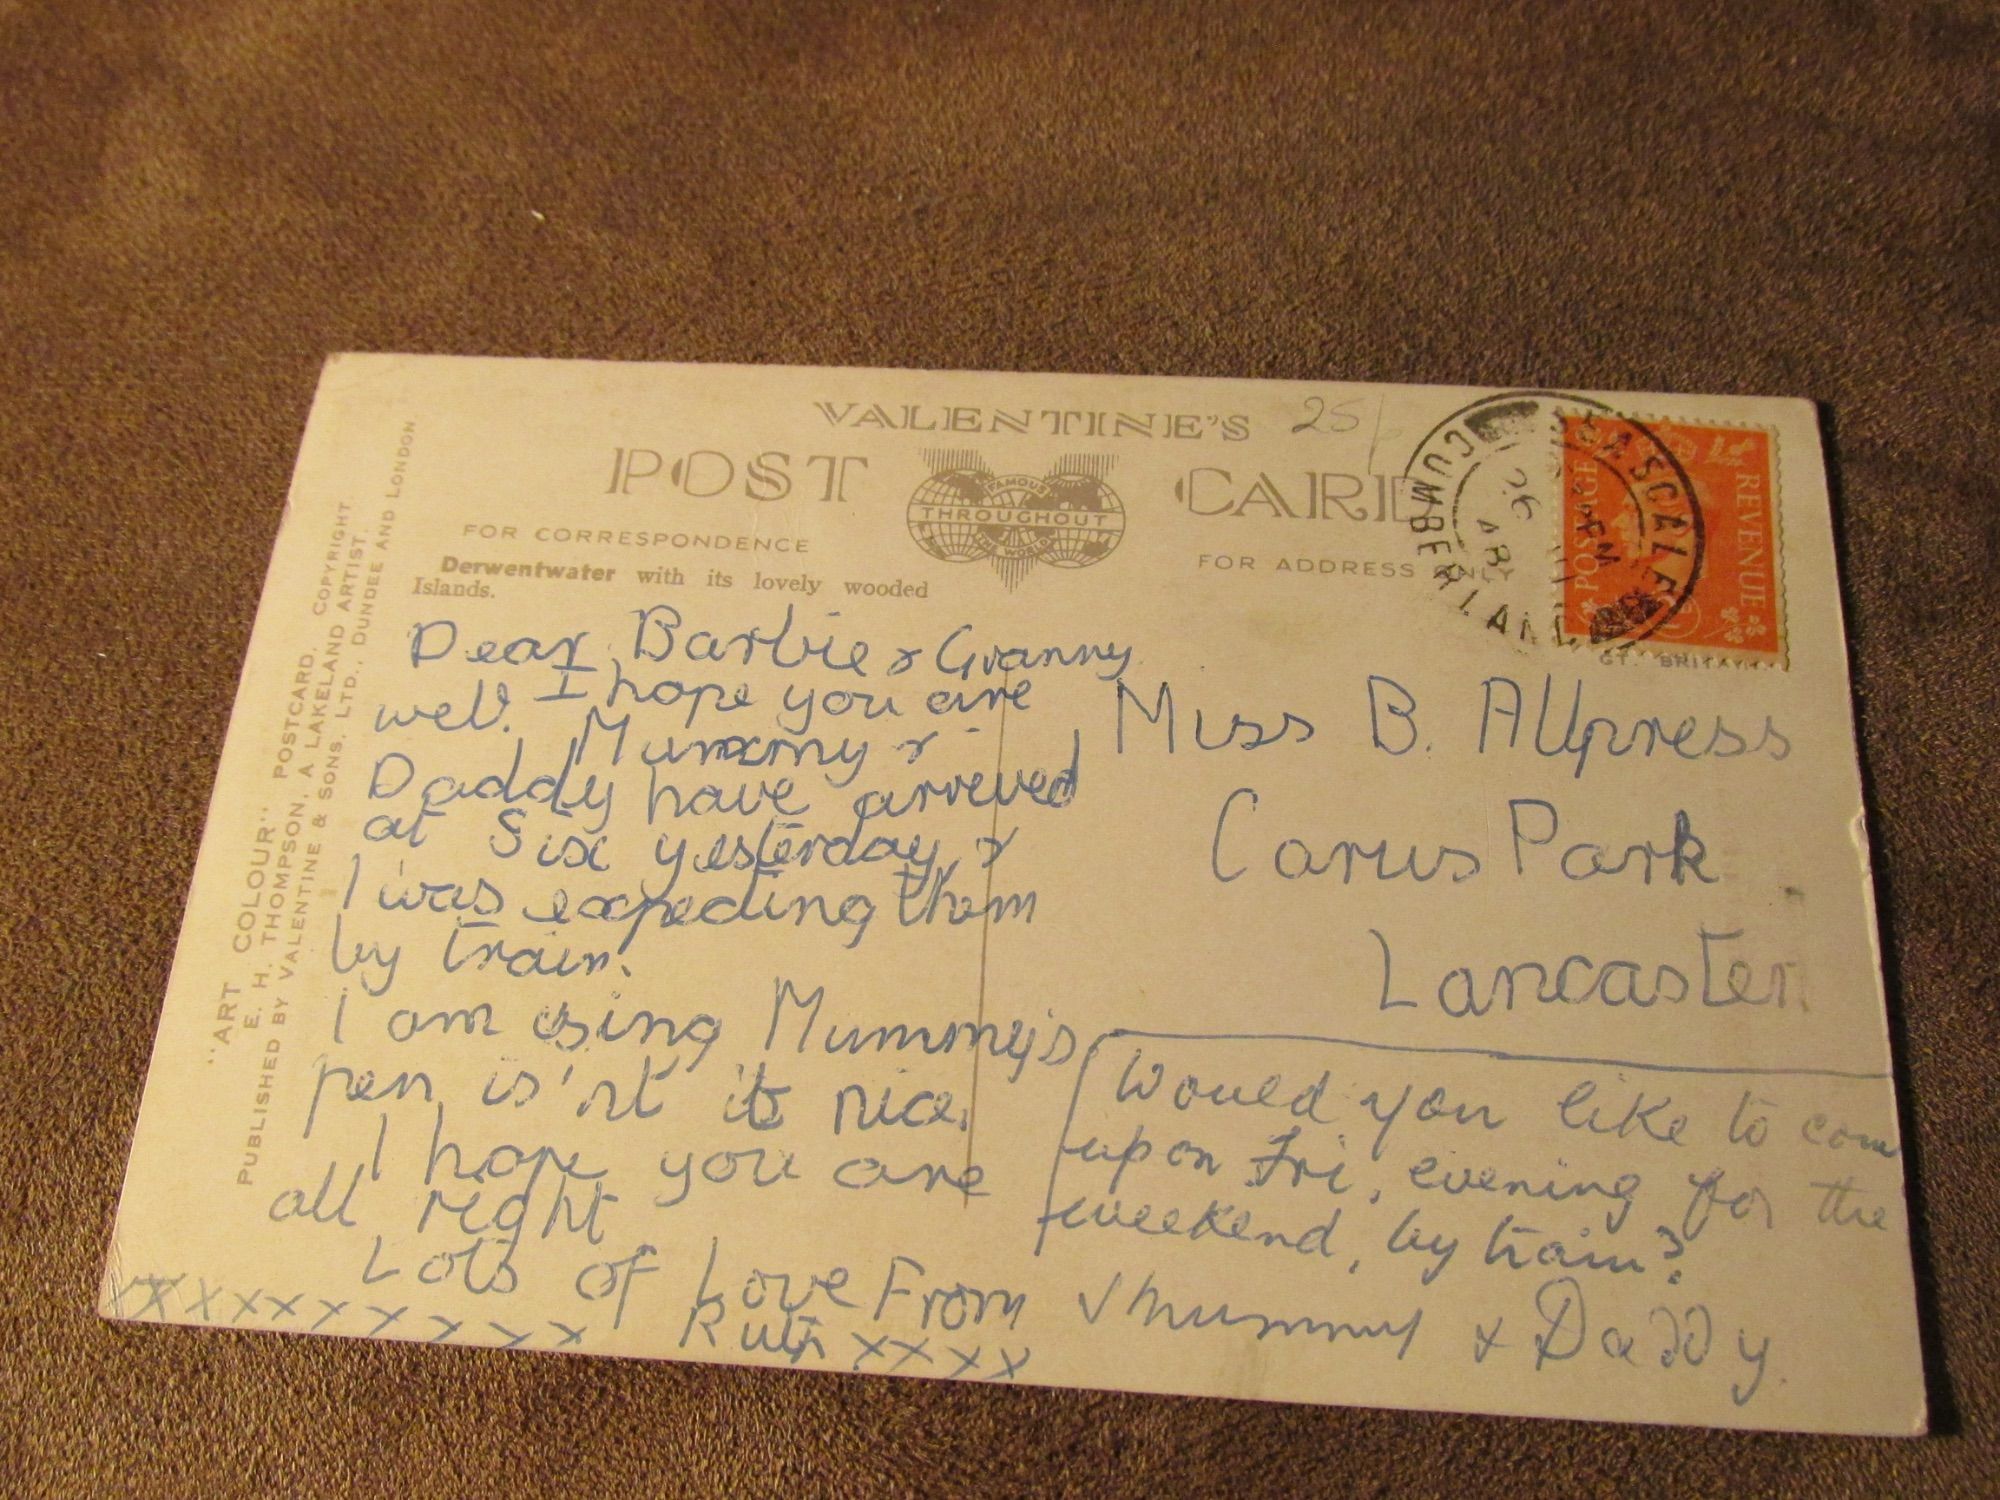 VALENTINE'S
25/
POST CARD
FAMOUS
THROUGHOUT
THE WORLD
FOR CORRESPONDENCE
FOR ADDRESS ONLY
Derwentwater with its lovely wooded
Islands.
SEASCALE
CUMBERLAND
26
48
PM
POSTAGE
REVENUE
GT. BRITAIN
"ART COLOUR" POSTCARD. COPYRIGHT
E. H. THOMPSON, A LAKELAND ARTIST.
PUBLISHED BY VALENTINE & SONS, LTD., DUNDEE AND LONDON.
Dear Barbie & Granny
I hope you are
well. Mummy &
Daddy have arreved
at Six yesterday &
I was expecting them
by train.
I am using Mummy's
pen is'nt it nice.
I hope you are
all right
Lots of Love From
Ruth xxxx
xxxxxxxxxxx
Miss B. Allpress
Carus Park
Lancaster
Would you like to come
up on Fri, evening for the
weekend, by train?
Mummy & Daddy